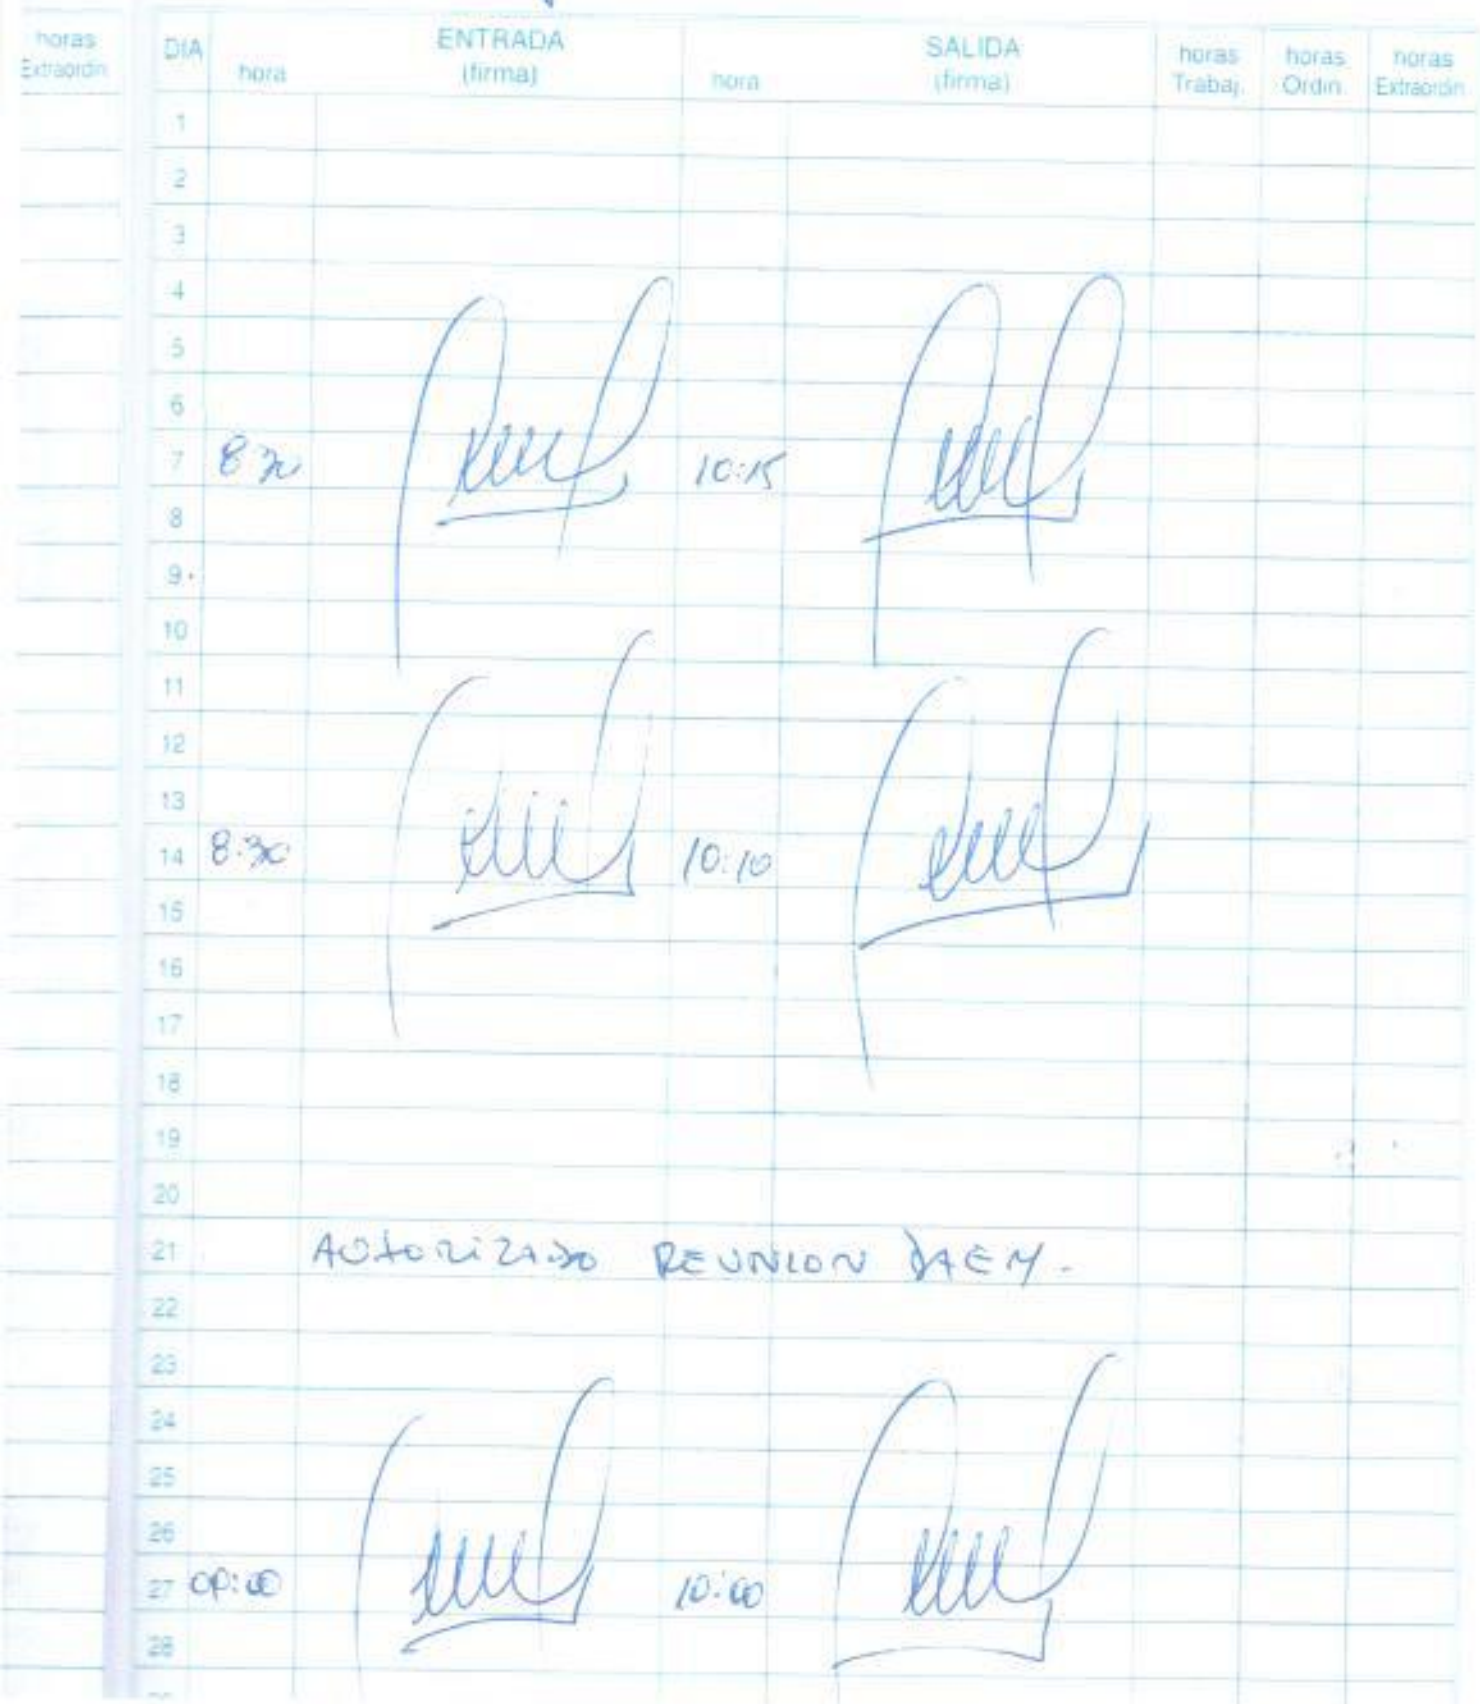 horas Extraordin.
DIA hora ENTRADA (firma) hora SALIDA (firma) horas Trabaj. horas Ordin. horas Extraordin.
1
2
3
4
5
6
7 8 30 10:15
8
9
10
11
12
13
14 8:30 10:10
15
16
17
18
19
20
21 AUTORIZADO REUNION DAEM.
22
23
24
25
26
27 10:00
28